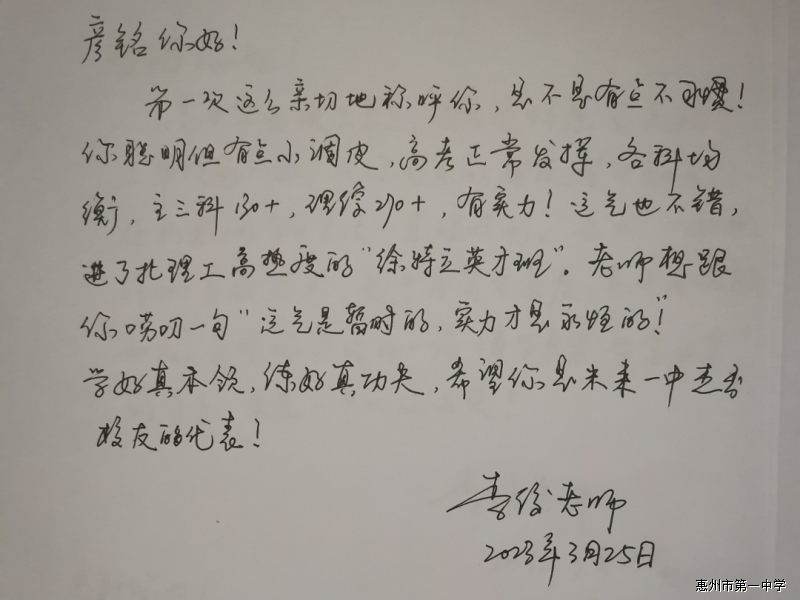 彦铭你好！
第一次这么亲切地称呼你，是不是有点不习惯！
你聪明但有点小调皮，高考正常发挥，各科均
衡，主三科130+，理综270+，有实力！运气也不错，
进了北理工高热度的“徐特立英才班”。老师想跟
你唠叨一句“运气是暂时的，实力才是永恒的”！
学好真本领，练好真功夫，希望你是未来一中杰出
校友的代表！
李俊老师
2023年3月25日
惠州市第一中学